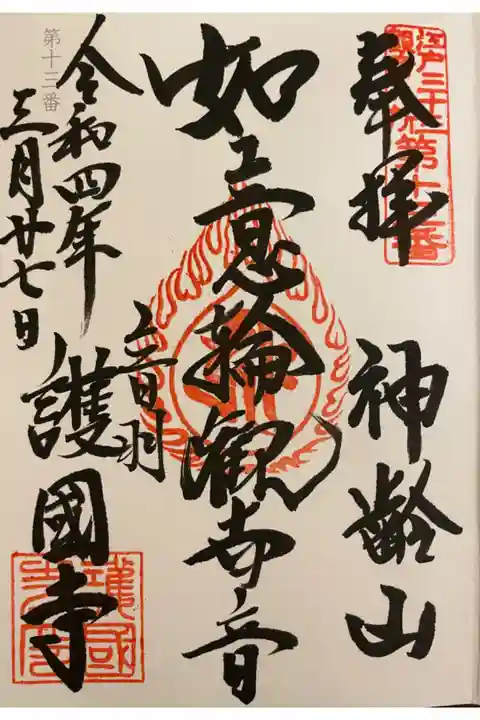 江戸三十三
第十三番
奉拝
神齢山
如意輪観世音
音羽
護國寺
令和四年
三月廿七日
第十三番